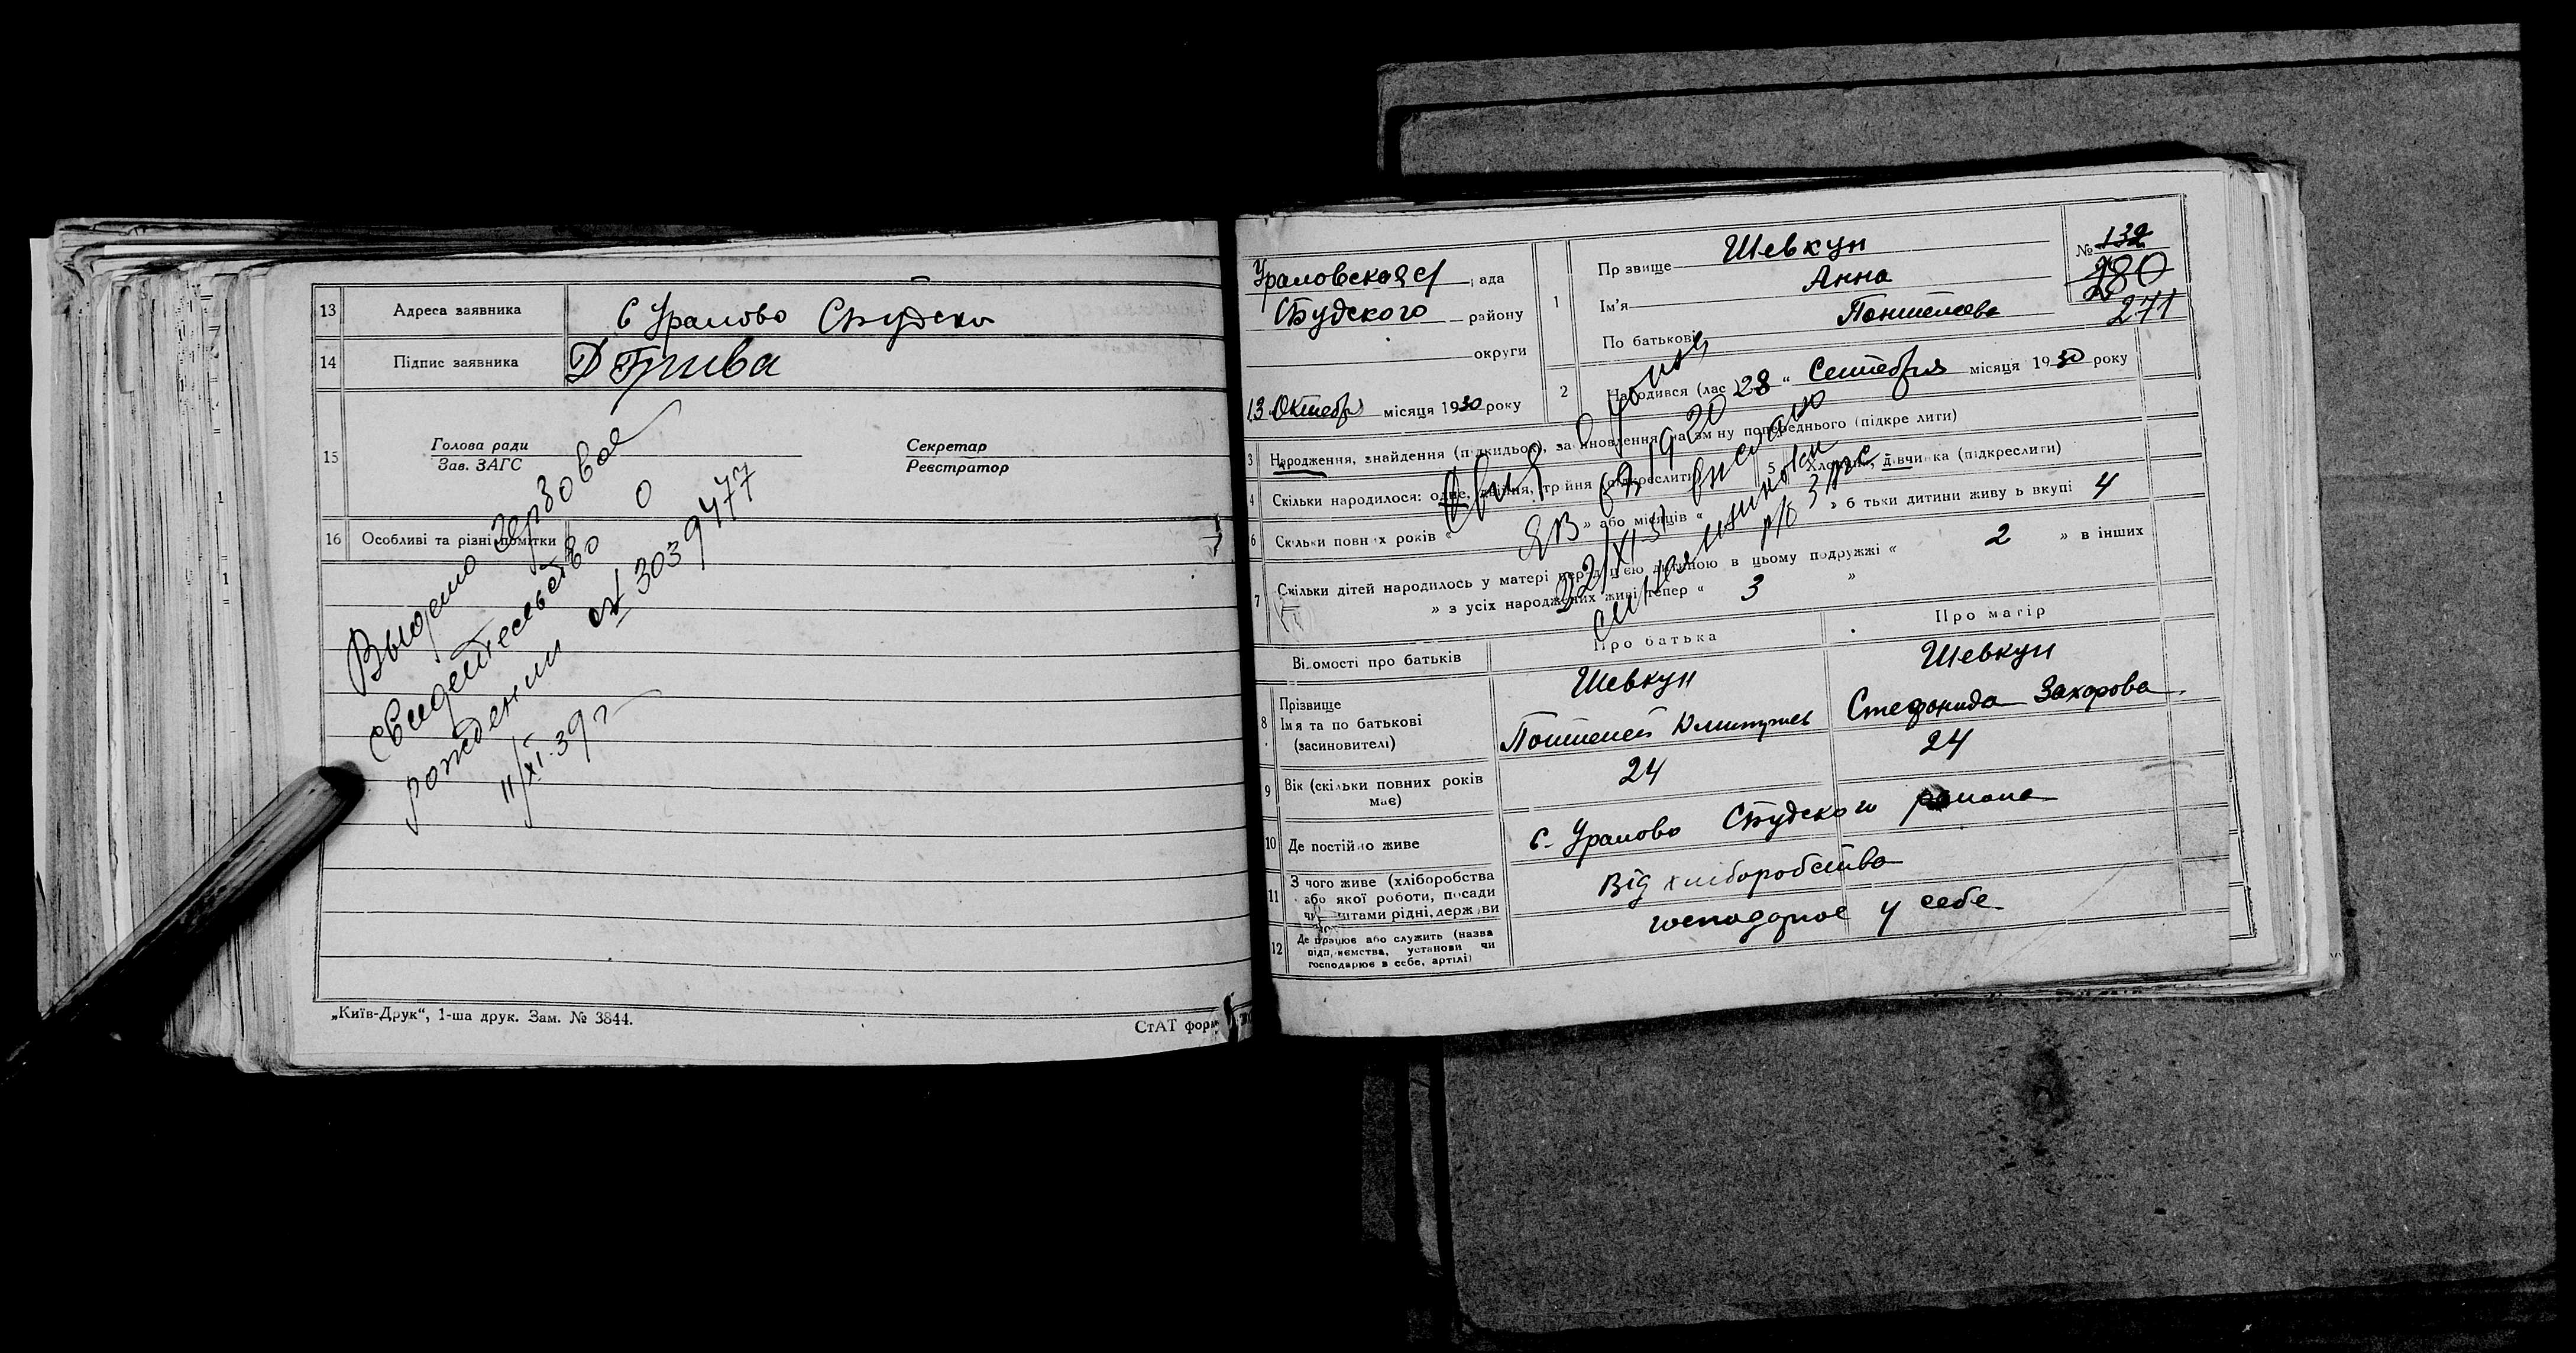 13 Адреса заявника С Уралово СБудски
14 Підпис заявника Д Грива
15 Голова ради Секретар
Зав. ЗАГС Реєстратор
16 Особливі та різні помітки
Выдано гербовое
Свидетельство о
рождении от 303 9477
11/XI.39 г
„Київ-Друк“, 1-ша друк. Зам. № 3844.
СтАТ форм
Ураловская с/ ада
СБудского району
округи
13 Октебря місяця 1930 року
1 Пр звище Шевкун
Ім'я Анна
По батькові Пантелеева
№ 139
280
271
2 Народився (лас ) 28 “ Сентебря місяця 1930 року
3 Народження, знайдення (підкидьок), за иновлення на зм ну попереднього (підкре лити)
4 Скільки народилося: одне, двійня, тр йня (підкреслити) 5 Хлопчик, дівчинка (підкреслити)
6 Скільки повних років « » або місяців « » б тьки дитини живу ь вкупі 4
7 Скільки дітей народилось у матері перед цією дитиною в цьому подружжі « 2 » в інших
» з усіх народжених живі тепер « 3 »
22/XI-51
Відомості про батьків Про батька Про матір
8 Прізвище Шевкун Шевкун
Імя та по батькові
(засиновителі) Пантелей Дмитриев Стефанида Захарова
9 Вік (скільки повних років має) 24 24
10 Де постійно живе С. Уралово СБудского района
11 З чого живе (хліборобства
або якої роботи, посади
чи штами рідні, держ ви Від хліборобства
12 Де працює або служить (назва
підприємства, установи чи
господарює в себе, артілі) господарює у себе